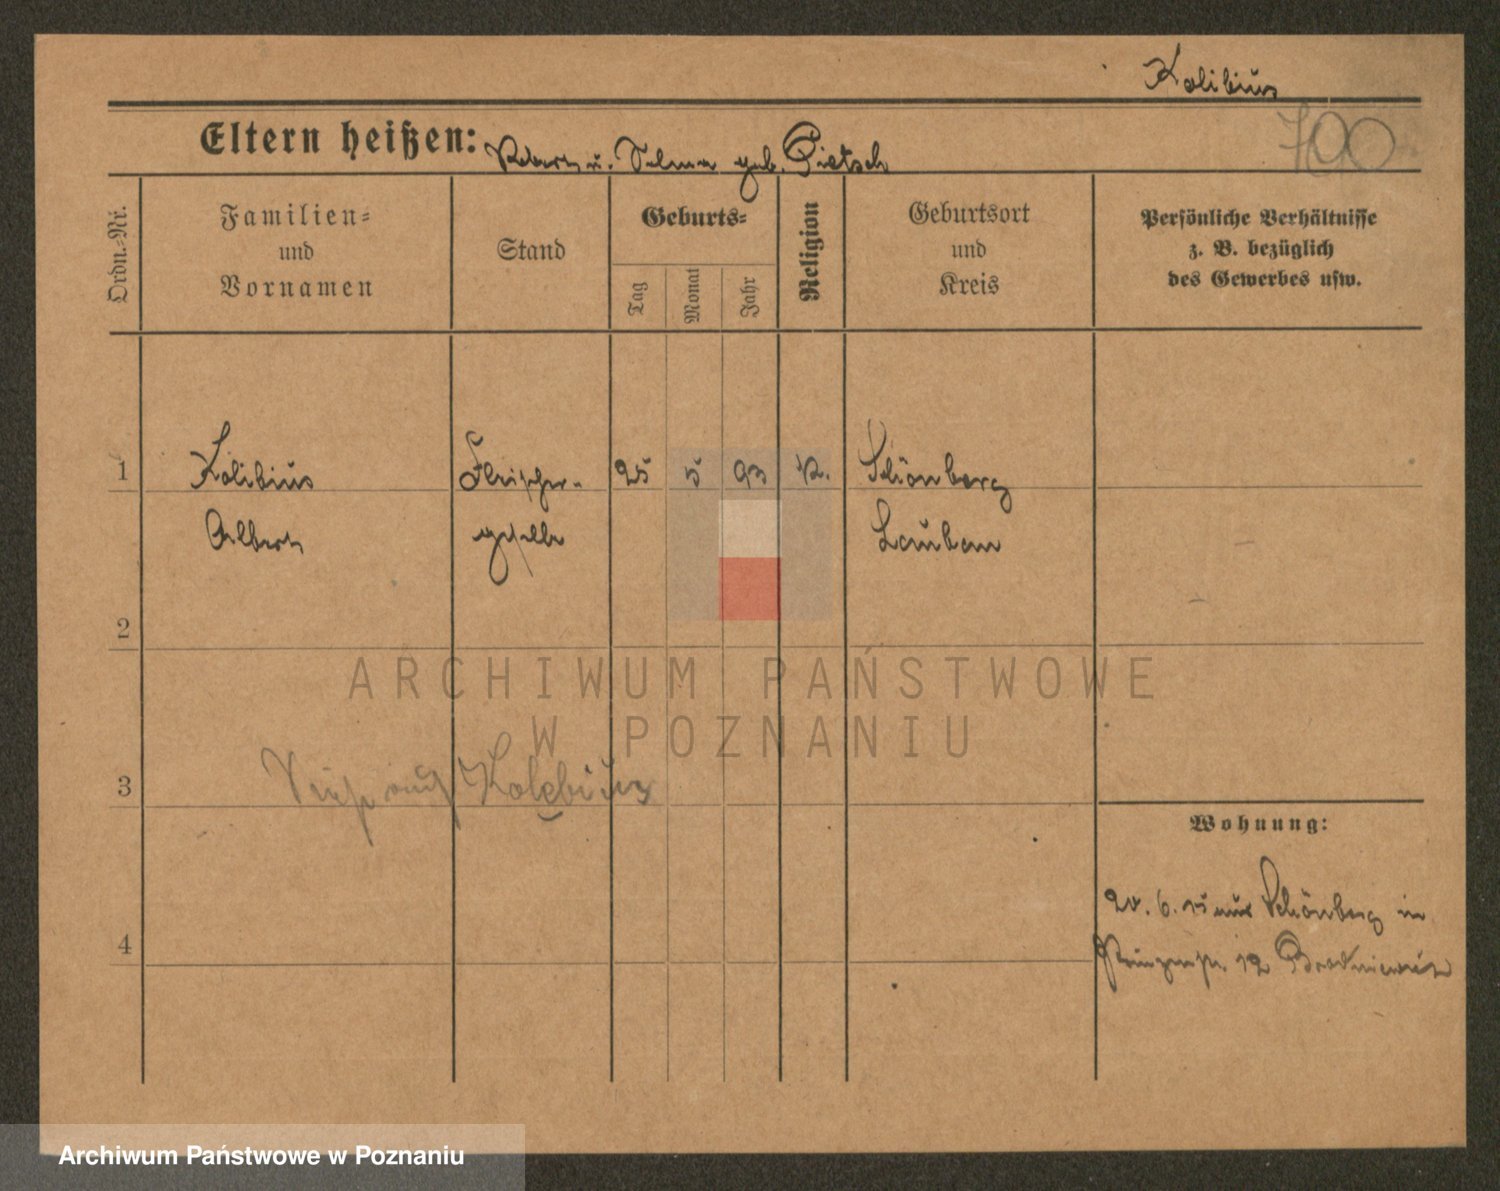 Kolibius
700
Eltern heißen: Robert u. Selma geb. Pietsch
Ordn.-Nr.
Familien-
und
Vornamen
Stand
Geburts-
Tag
Monat
Jahr
Religion
Geburtsort
und
Kreis
Persönliche Verhältnisse
z. B. bezüglich
des Gewerbes usw.
1 Kolibius Fleischer- 25 5 93 K. Schönberg
Albert geselle Lauban
2
ARCHIWUM PAŃSTWOWE
W POZNANIU
3 Sieh auch Kolebius
Wohnung:
20. 6. 15 aus Schönberg in
4 Prinzenstr. 12
Archiwum Państwowe w Poznaniu